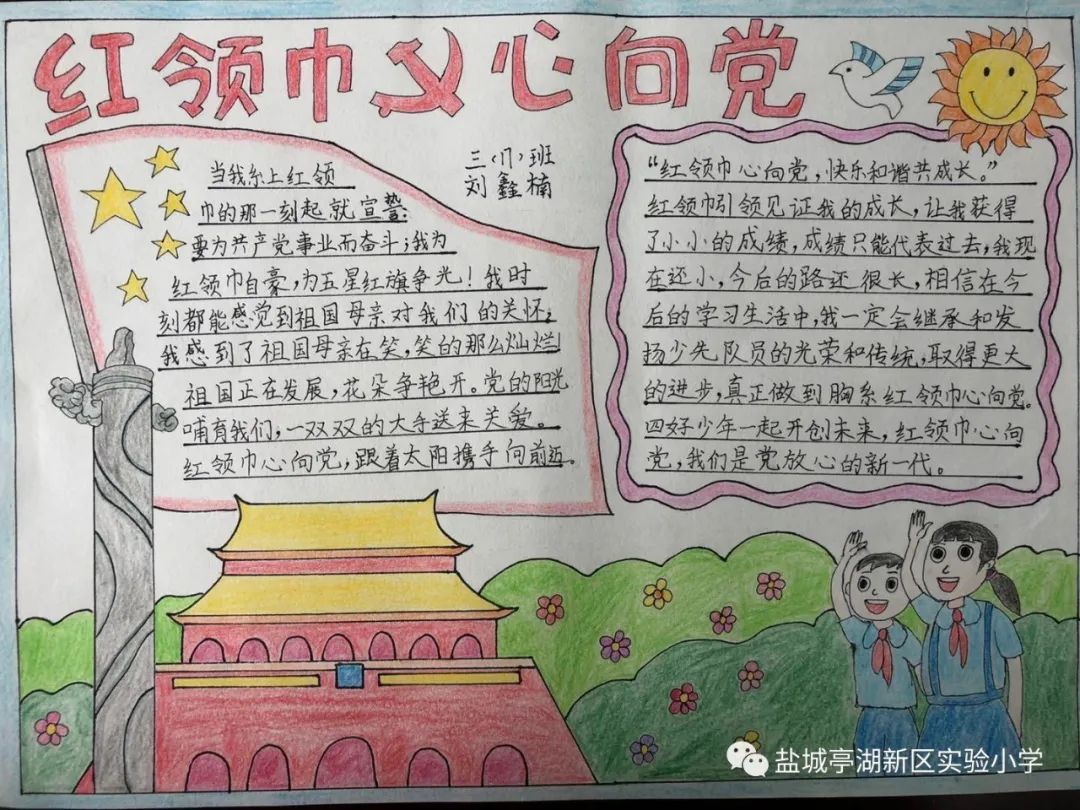 红领巾心向党
三(17)班
刘鑫楠
当我系上红领
巾的那一刻起就宣誓:
要为共产党事业而奋斗;我为
红领巾自豪,为五星红旗争光!我时
刻都能感觉到祖国母亲对我们的关怀,
我感到了祖国母亲在笑,笑的那么灿烂
祖国正在发展,花朵争艳开。党的阳光
哺育我们,一双双的大手送来关爱。
红领巾心向党,跟着太阳携手向前迈。
“红领巾心向党,快乐和谐共成长。”
红领巾引领见证我的成长,让我获得
了小小的成绩,成绩只能代表过去,我现
在还小,今后的路还很长,相信在今
后的学习生活中,我一定会继承和发
扬少先队员的光荣和传统,取得更大
的进步,真正做到胸系红领巾心向党。
四好少年一起开创未来,红领巾心向
党,我们是党放心的新一代。
盐城亭湖新区实验小学